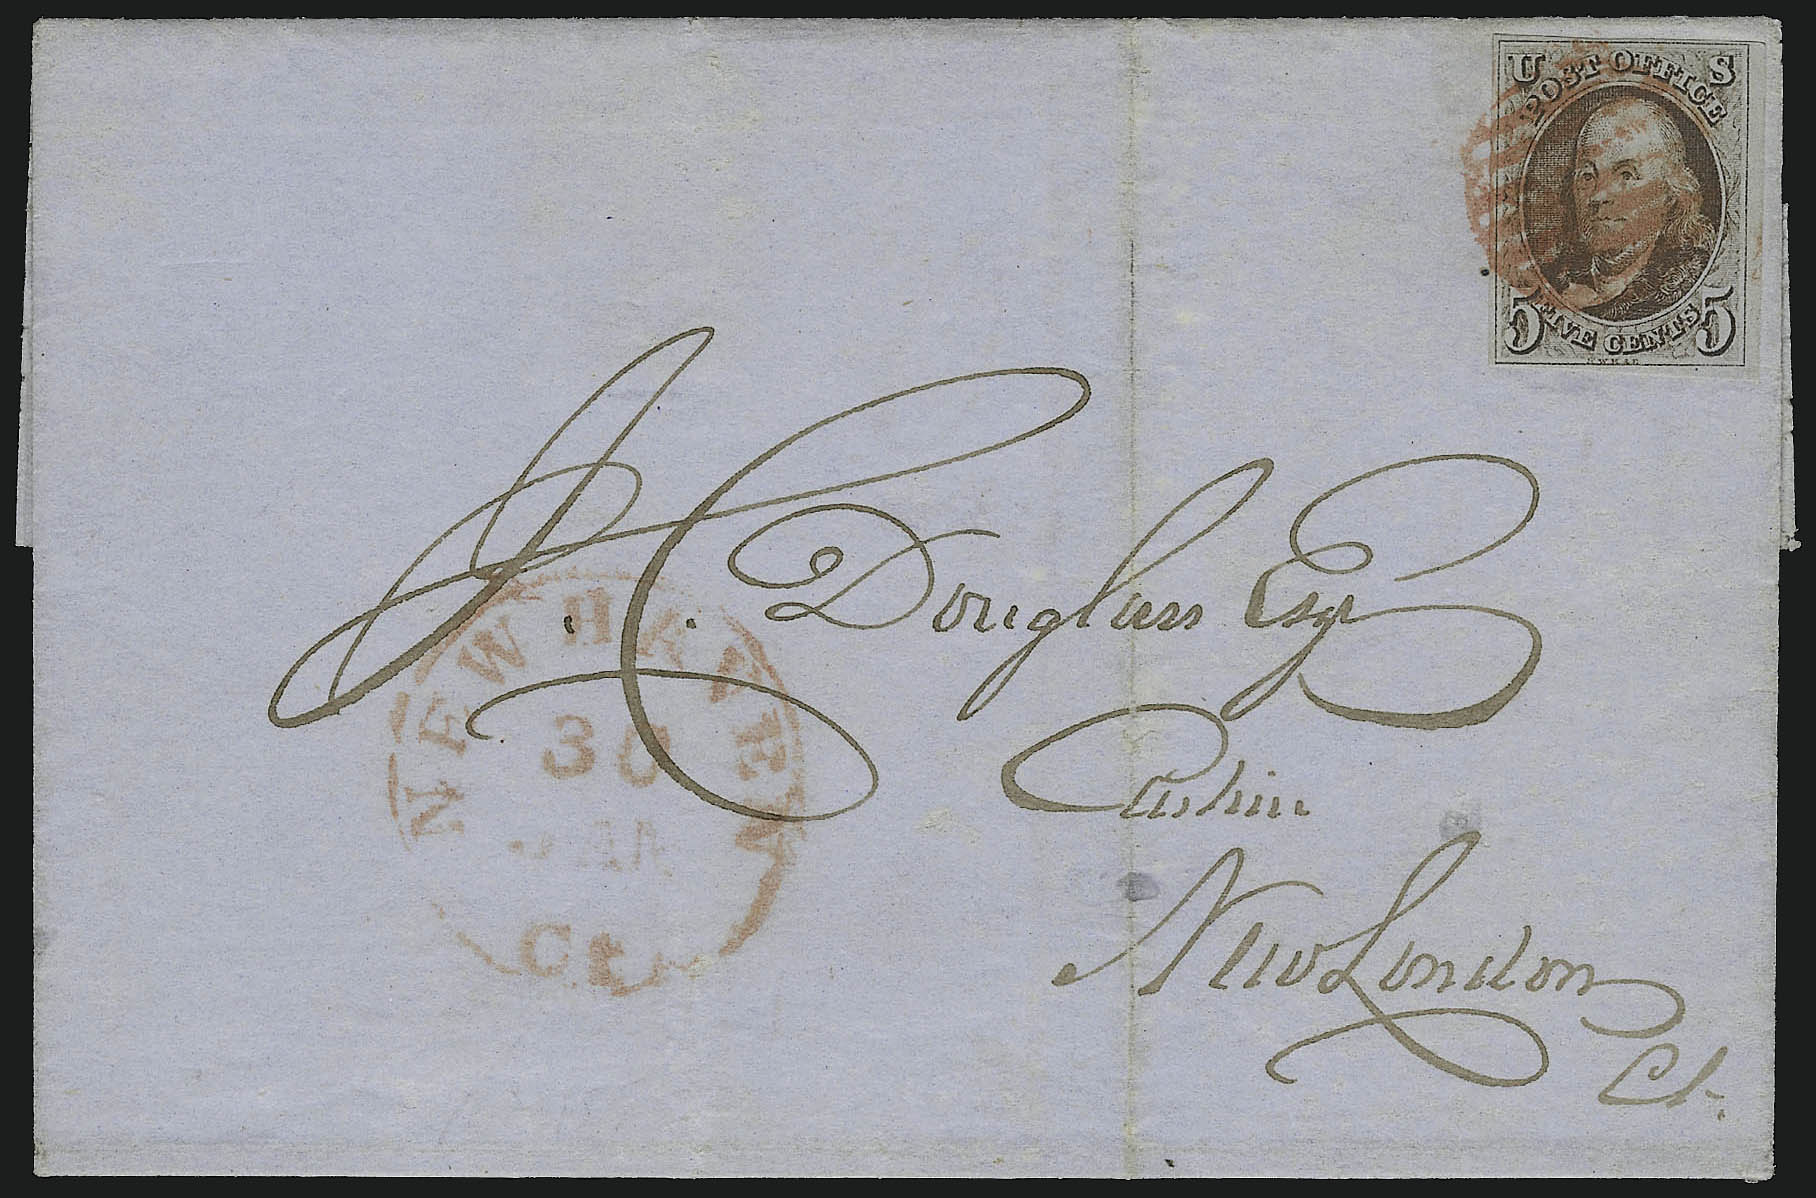 U S
POST OFFICE
5 FIVE CENTS 5
J. C. Douglass Esqr
Cashier
New London
Ct.
NEW HAVEN
30
Ct.